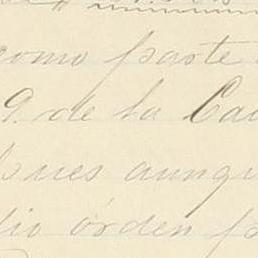 como parte
9. de la Ca
pues aunqu
dio órden p